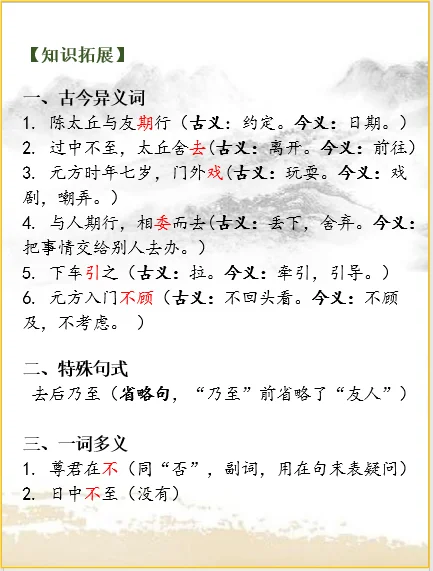 【知识拓展】
一、古今异义词
1. 陈太丘与友期行（古义：约定。今义：日期。）
2. 过中不至，太丘舍去(古义：离开。今义：前往）
3. 元方时年七岁，门外戏(古义：玩耍。今义：戏
剧，嘲弄。）
4. 与人期行，相委而去(古义：丢下，舍弃。今义：
把事情交给别人去办。）
5. 下车引之（古义：拉。今义：牵引，引导。）
6. 元方入门不顾（古义：不回头看。今义：不顾
及，不考虑。 ）
二、特殊句式
去后乃至（省略句，“乃至”前省略了“友人”）
三、一词多义
1. 尊君在不（同“否”，副词，用在句末表疑问）
2. 日中不至（没有）